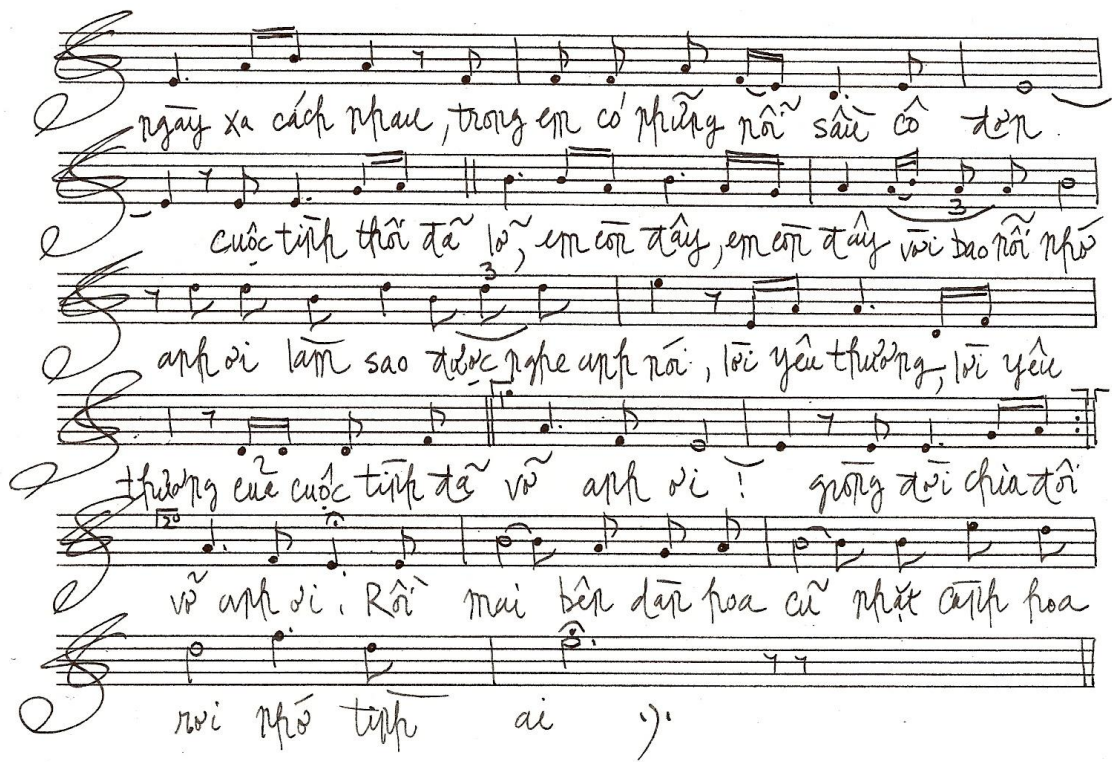 ngày xa cách nhau, trong em có những nỗi sầu cô đơn.
cuộc tình thôi đã lỡ, em còn đây, em còn đây với bao nỗi nhớ
3
3
anh ơi làm sao được nghe anh nói, lời yêu thương, lời yêu
thương của cuộc tình đã vỡ anh ơi! giòng đời chia đôi
2o
vỡ anh ơi! Rồi mai bên dàn hoa cũ nhặt cành hoa
rơi nhớ tình ai